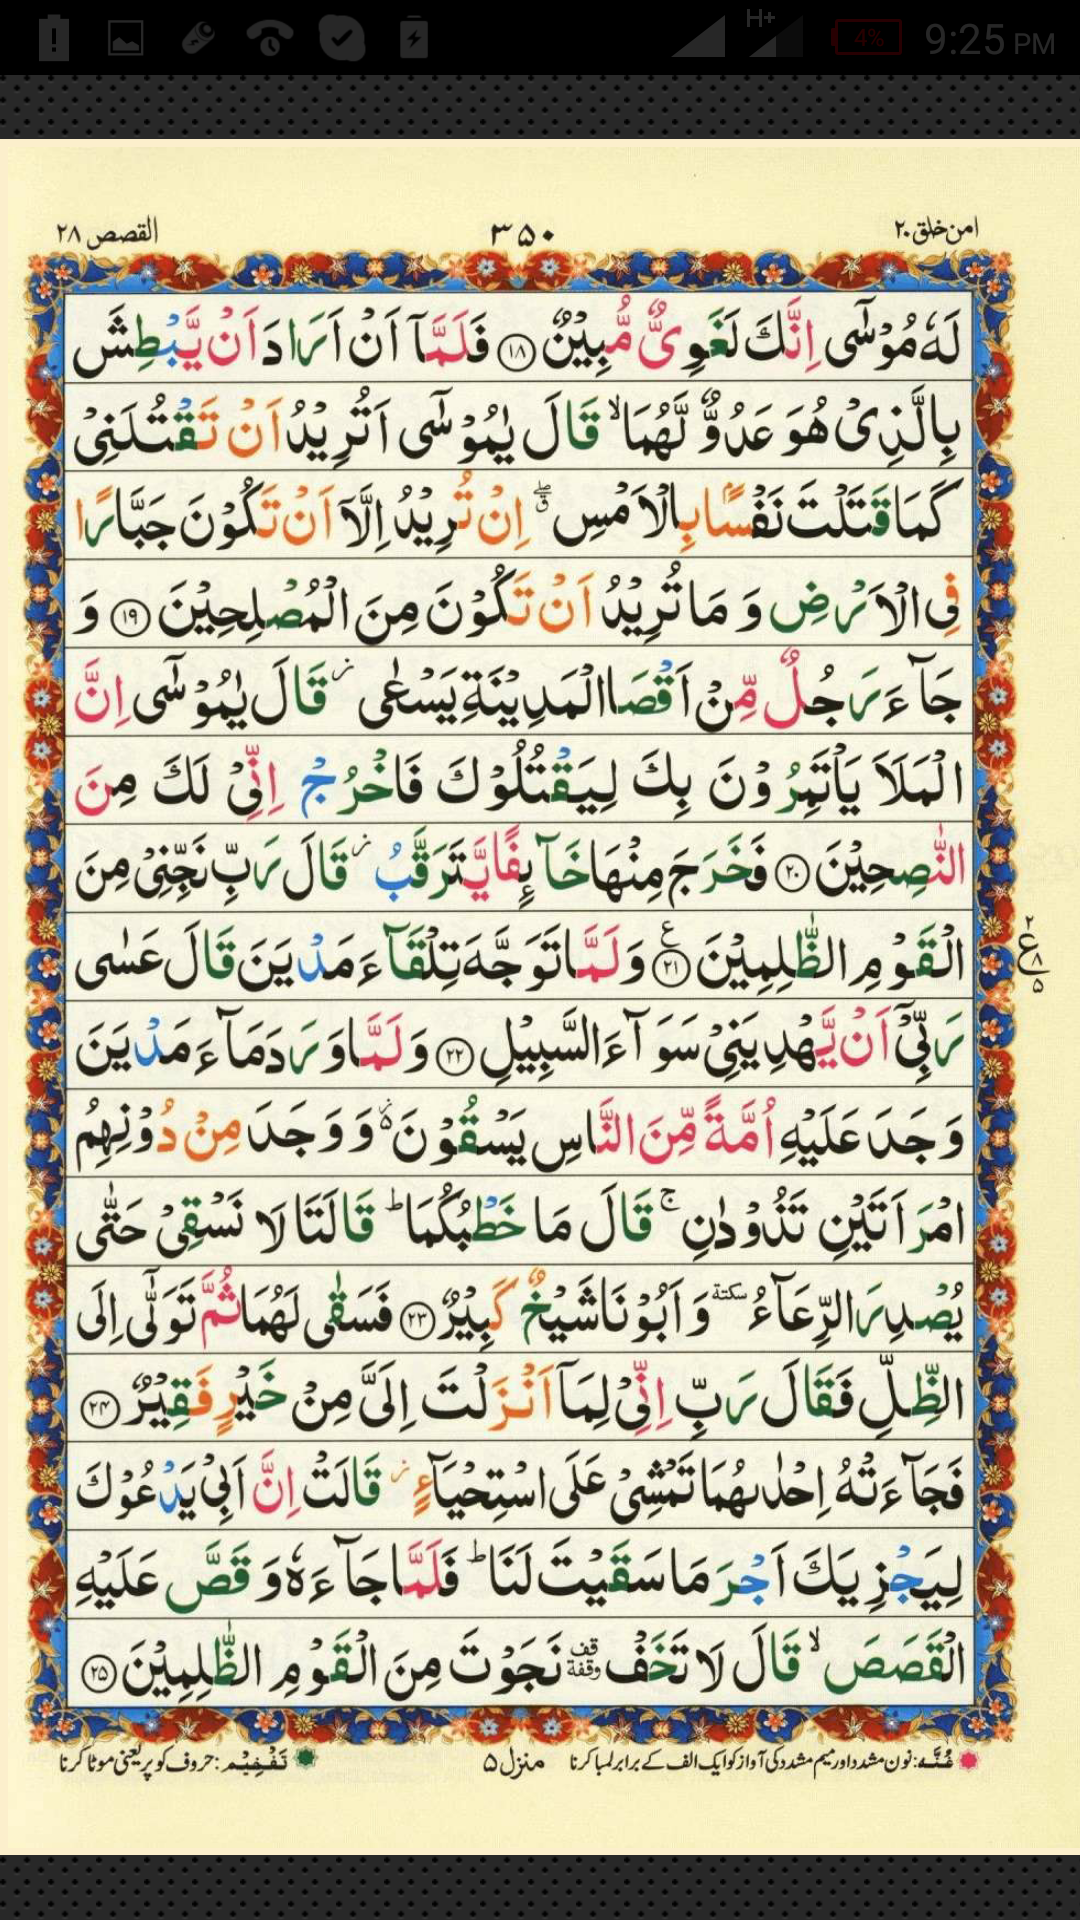 H+ 4% 9:25 PM
امن خلق ۲۰ ۳۵۰ القصص ۲۸
لَهٗ مُوْسٰٓى اِنَّكَ لَغَوِىٌّ مُّبِيْنٌ ﴿۱۸﴾ فَلَمَّاۤ اَنْ اَرَادَ اَنْ يَّبْطِشَ
بِالَّذِىْ هُوَ عَدُوٌّ لَّهُمَا ۙ قَالَ يٰمُوْسٰٓى اَتُرِيْدُ اَنْ تَقْتُلَنِىْ
كَمَا قَتَلْتَ نَفْسًۢا بِالْاَمْسِ ۖق اِنْ تُرِيْدُ اِلَّاۤ اَنْ تَكُوْنَ جَبَّارًا
فِى الْاَرْضِ وَ مَا تُرِيْدُ اَنْ تَكُوْنَ مِنَ الْمُصْلِحِيْنَ ﴿۱۹﴾ وَ
جَآءَ رَجُلٌ مِّنْ اَقْصَا الْمَدِيْنَةِ يَسْعٰى ز قَالَ يٰمُوْسٰٓى اِنَّ
الْمَلَاَ يَاْتَمِرُوْنَ بِكَ لِيَقْتُلُوْكَ فَاخْرُجْ اِنِّىْ لَكَ مِنَ
النّٰصِحِيْنَ ﴿۲۰﴾ فَخَرَجَ مِنْهَا خَآئِفًا يَّتَرَقَّبُ ز قَالَ رَبِّ نَجِّنِىْ مِنَ
الْقَوْمِ الظّٰلِمِيْنَ ﴿۲۱﴾ ع وَلَمَّا تَوَجَّهَ تِلْقَآءَ مَدْيَنَ قَالَ عَسٰى
۲ ع ۸ ۵
رَبِّىْۤ اَنْ يَّهْدِيَنِىْ سَوَآءَ السَّبِيْلِ ﴿۲۲﴾ وَلَمَّا وَرَدَ مَآءَ مَدْيَنَ
وَجَدَ عَلَيْهِ اُمَّةً مِّنَ النَّاسِ يَسْقُوْنَ ۬ۥ وَ وَجَدَ مِنْ دُوْنِهِمُ
امْرَاَتَيْنِ تَذُوْدٰنِ ۚ قَالَ مَا خَطْبُكُمَا ؕ قَالَتَا لَا نَسْقِىْ حَتّٰى
يُصْدِرَ الرِّعَآءُ سكتة وَ اَبُوْنَا شَيْخٌ كَبِيْرٌ ﴿۲۳﴾ فَسَقٰى لَهُمَا ثُمَّ تَوَلّٰٓى اِلَى
الظِّلِّ فَقَالَ رَبِّ اِنِّىْ لِمَاۤ اَنْزَلْتَ اِلَىَّ مِنْ خَيْرٍ فَقِيْرٌ ﴿۲۴﴾
فَجَآءَتْهُ اِحْدٰىهُمَا تَمْشِىْ عَلَى اسْتِحْيَآءٍ ز قَالَتْ اِنَّ اَبِىْ يَدْعُوْكَ
لِيَجْزِيَكَ اَجْرَ مَا سَقَيْتَ لَنَا ؕ فَلَمَّا جَآءَهٗ وَ قَصَّ عَلَيْهِ
الْقَصَصَ ۙ قَالَ لَا تَخَفْ قف وقفة نَجَوْتَ مِنَ الْقَوْمِ الظّٰلِمِيْنَ ﴿۲۵﴾
غُنَّه: نون مشدد اور میم مشدد کی آواز کو ایک الف کے برابر لمبا کرنا منزل ۵ تَفْخِیْم: حروف کو پر یعنی موٹا کرنا